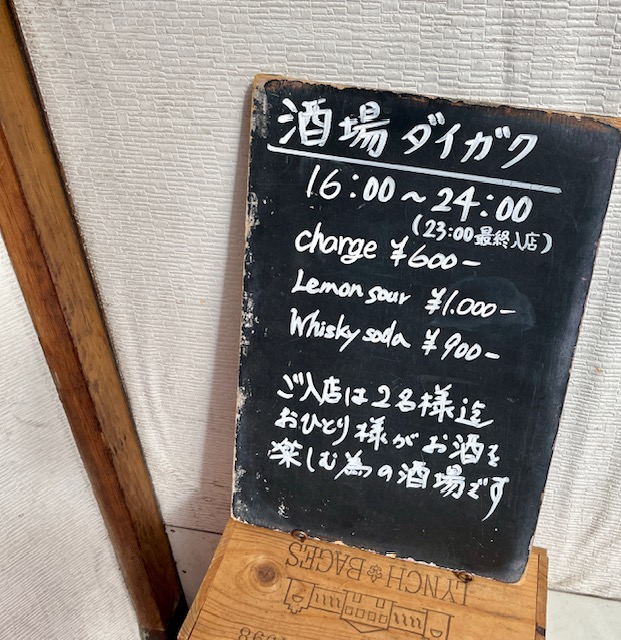 酒場ダイガク
16:00～24:00
(23:00最終入店)
charge ¥600-
Lemon sour ¥1.000-
Whisky soda ¥900-
ご入店は2名様迄
おひとり様がお酒を
楽しむ為の酒場です
LYNCH BAGES
1998